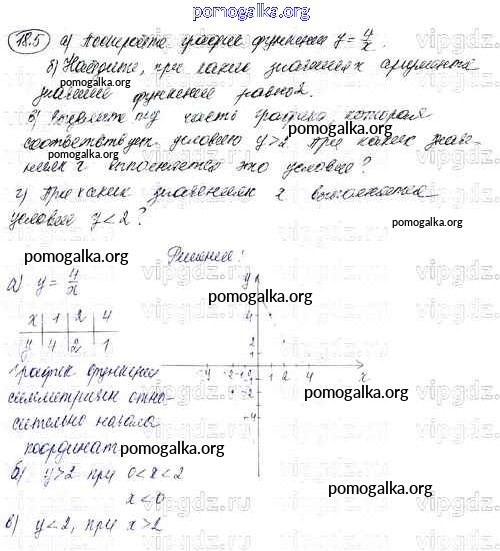 pomogalka.org
18.5 а) Постройте график функции y = 4/x.
б) Найдите, при каких значениях аргумента
pomogalka.org
значение функции равно
в) выделите ту часть графика, которая
соответствует условию y>2. При каких значе-
ниях x выполняется это условие?
pomogalka.org
г) При каких значениях x выполняется
условие y<2?
pomogalka.org
pomogalka.org
Решение:
а) y = 4/x
pomogalka.org
x 1 2 4
y 4 2 1
y
4
2
1
-4 -2 -1 1 2 4 x
-2
-4
график функции
симметричен отно-
сительно начала
координат
pomogalka.org
pomogalka.org
б) y>2 при 0<x<2
x<0
pomogalka.org
в) y<2, при x>2
vipgdz.ru